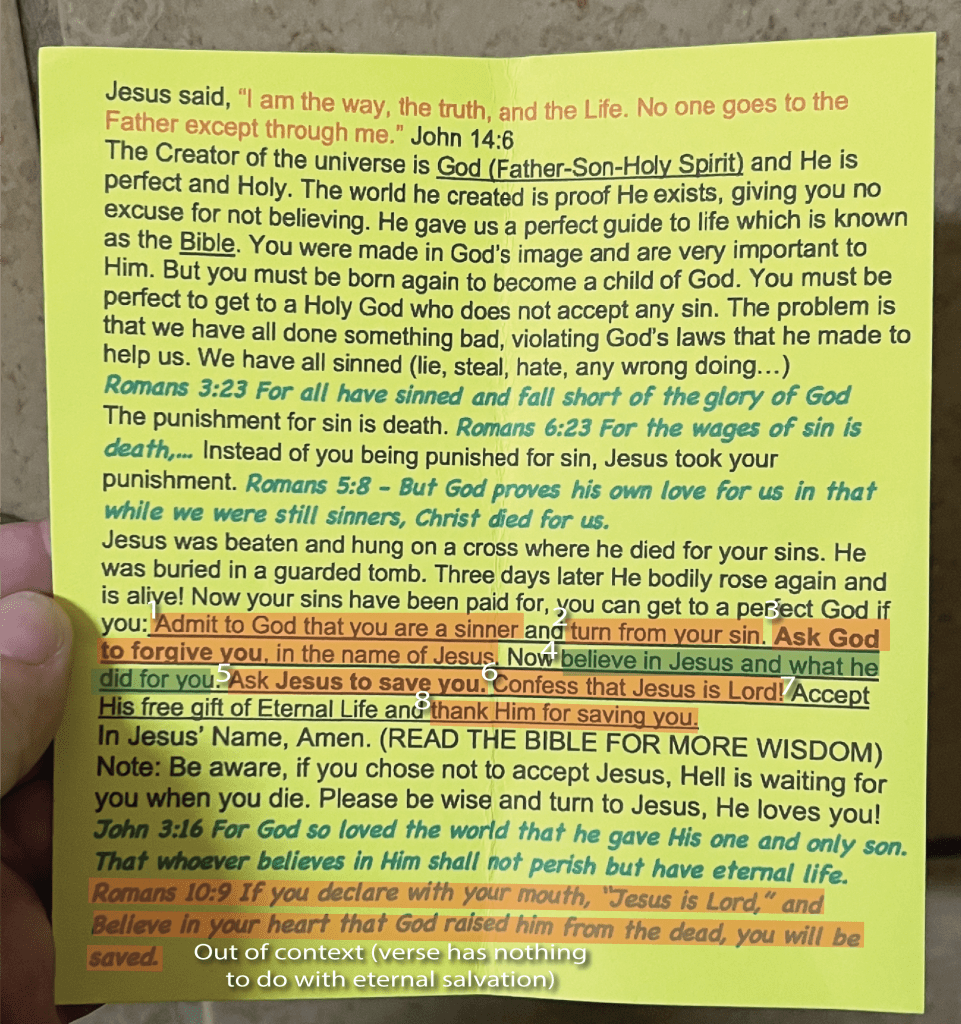 Jesus said, "I am the way, the truth, and the Life. No one goes to the
Father except through me." John 14:6
The Creator of the universe is God (Father-Son-Holy Spirit) and He is
perfect and Holy. The world he created is proof He exists, giving you no
excuse for not believing. He gave us a perfect guide to life which is known
as the Bible. You were made in God's image and are very important to
Him. But you must be born again to become a child of God. You must be
perfect to get to a Holy God who does not accept any sin. The problem is
that we have all done something bad, violating God's laws that he made to
help us. We have all sinned (lie, steal, hate, any wrong doing...)
Romans 3:23 For all have sinned and fall short of the glory of God
The punishment for sin is death. Romans 6:23 For the wages of sin is
death,... Instead of you being punished for sin, Jesus took your
punishment. Romans 5:8 - But God proves his own love for us in that
while we were still sinners, Christ died for us.
Jesus was beaten and hung on a cross where he died for your sins. He
was buried in a guarded tomb. Three days later He bodily rose again and
is alive! Now your sins have been paid for, you can get to a perfect God if
you: 1 Admit to God that you are a sinner and 2 turn from your sin. 3 Ask God
to forgive you, in the name of Jesus. Now 4 believe in Jesus and what he
did for you. 5 Ask Jesus to save you. 6 Confess that Jesus is Lord! 7 Accept
His free gift of Eternal Life and 8 thank Him for saving you.
In Jesus' Name, Amen. (READ THE BIBLE FOR MORE WISDOM)
Note: Be aware, if you chose not to accept Jesus, Hell is waiting for
you when you die. Please be wise and turn to Jesus, He loves you!
John 3:16 For God so loved the world that he gave His one and only son.
That whoever believes in Him shall not perish but have eternal life.
Romans 10:9 If you declare with your mouth, "Jesus is Lord," and
Believe in your heart that God raised him from the dead, you will be
saved.
Out of context (verse has nothing
to do with eternal salvation)